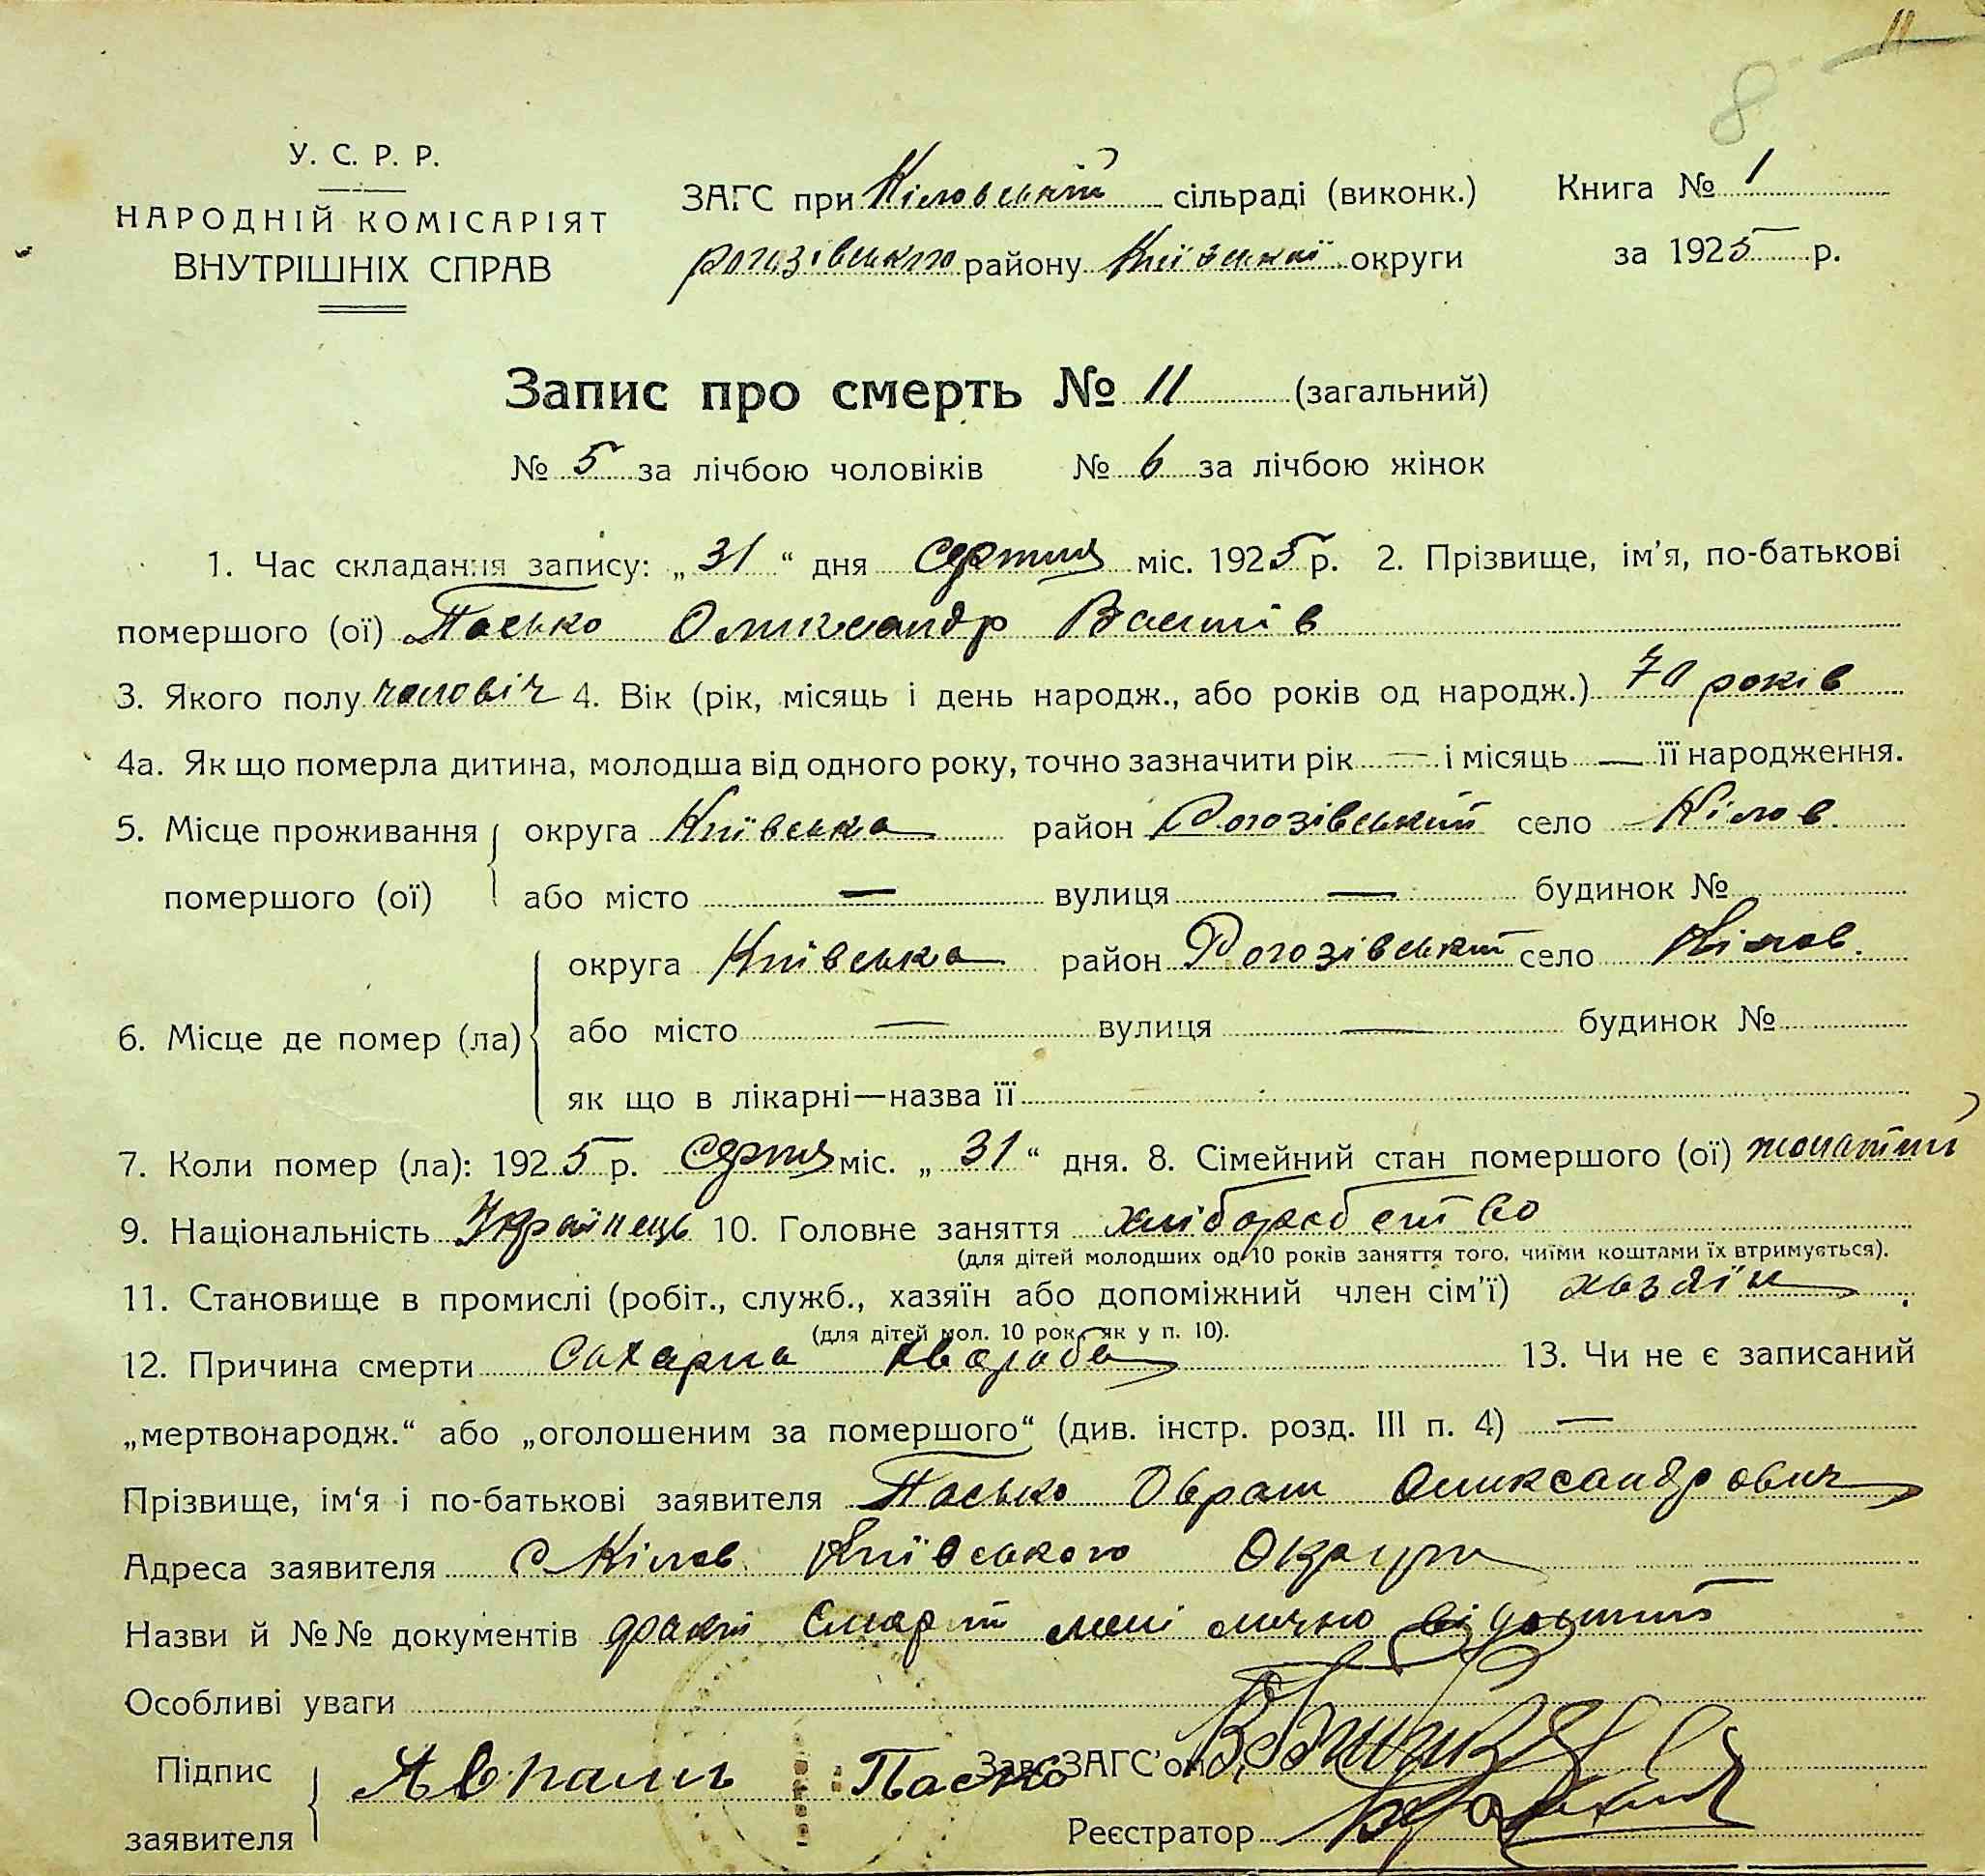 11
8
У. С. Р. Р.
НАРОДНІЙ КОМІСАРІЯТ
ВНУТРІШНІХ СПРАВ
ЗАГС при Кіловській сільраді (виконк.)
рогозівського району Київської округи
Книга № 1
за 1925 р.
Запис про смерть № 11 (загальний)
№ 5 за лічбою чоловіків № 6 за лічбою жінок
1. Час складання запису: „31“ дня Серпня міс. 1925 р. 2. Прізвище, ім'я, по-батькові
помершого (ої) Пасько Олександр Василів
3. Якого полу чоловіч 4. Вік (рік, місяць і день народж., або років од народж.) 70 років
4а. Як що померла дитина, молодша від одного року, точно зазначити рік — і місяць — її народження.
5. Місце проживання округа Київська район Рогозівський село Кілов
помершого (ої) або місто — вулиця — будинок №
округа Київська район Рогозівський село Кілов.
6. Місце де помер (ла) або місто — вулиця — будинок №
як що в лікарні—назва її
7. Коли помер (ла): 1925 р. Серпня міс. „31“ дня. 8. Сімейний стан помершого (ої) жонатий
9. Національність Українець 10. Головне заняття хліборобство
(для дітей молодших од 10 років заняття того, чиїми коштами їх втримується).
11. Становище в промислі (робіт., служб., хазяїн або допоміжний член сім'ї) хазяїн
(для дітей мол. 10 рок. як у п. 10).
12. Причина смерти Сахарна хвороба 13. Чи не є записаний
„мертвонародж.“ або „оголошеним за помершого“ (див. інстр. розд. III п. 4) —
Прізвище, ім'я і по-батькові заявителя Пасько Оврам Олександрович
Адреса заявителя С Кілов Київського Округи
Назви й №№ документів факт смерти мені лично відомий
Особливі уваги
Підпис заявителя Аврамъ Паско
Зав. ЗАГС'ом
Реєстратор